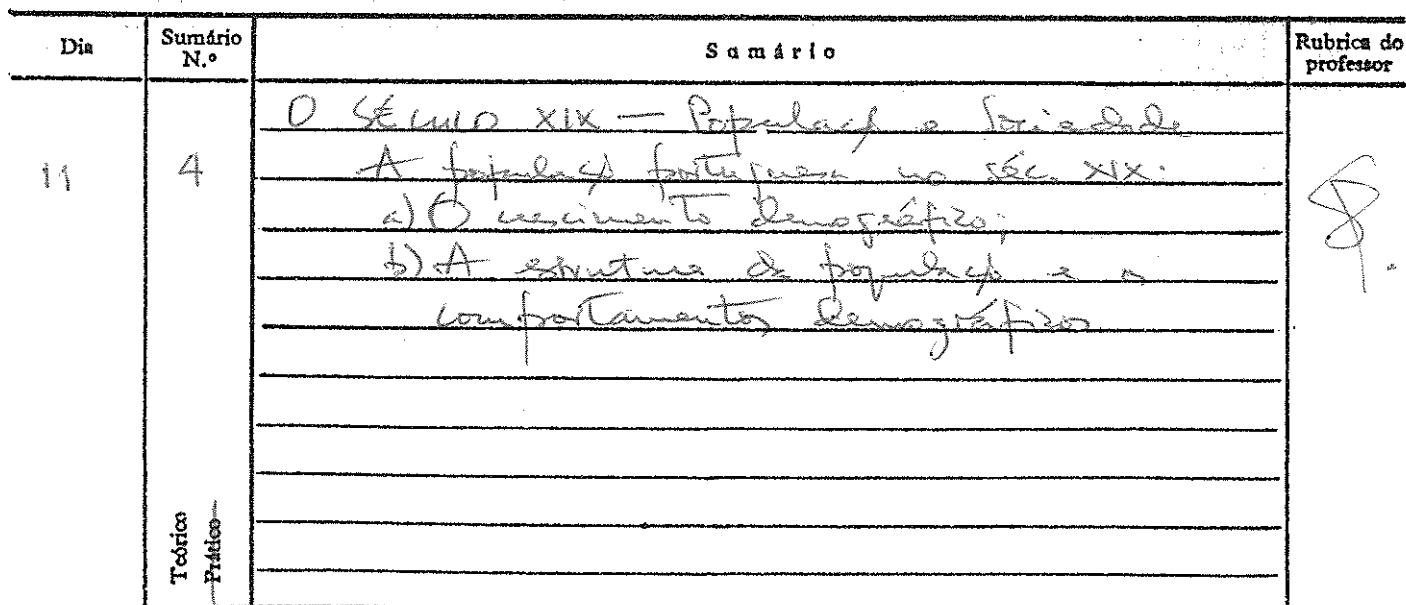 Dia
Sumário N.º
Sumário
Rubrica do professor
O SÉCULO XIX — População e Sociedade
11
4
A população portuguesa no séc. XIX:
a) O crescimento demográfico;
b) A estrutura da população e os
comportamentos demográficos
Teórico
Prático